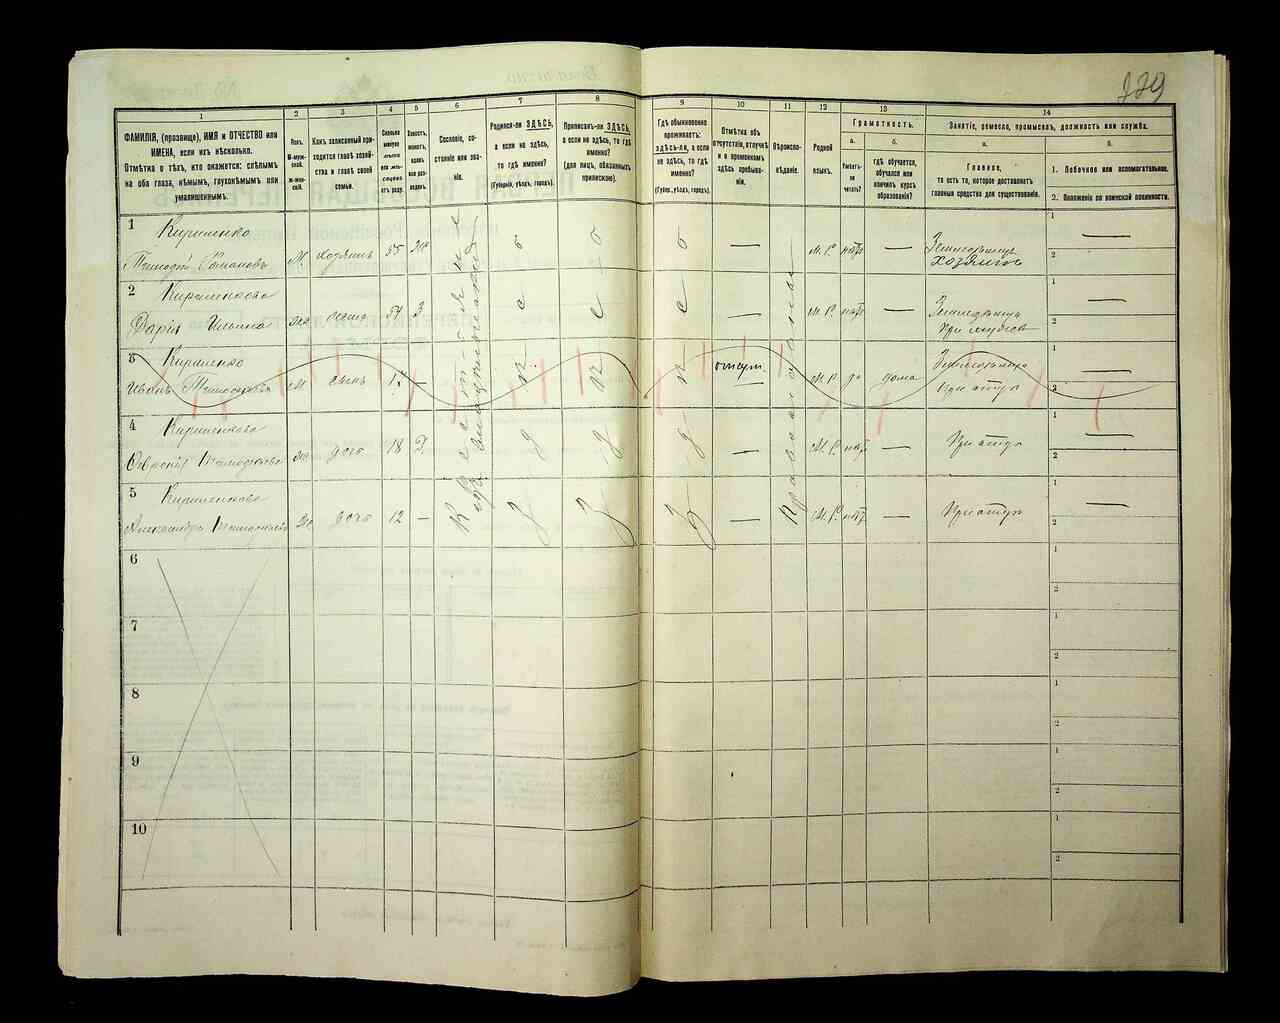 229
1
2
3
4
5
6
7
8
9
10
11
12
13
14
ФАМИЛІЯ, (прозвище), ИМЯ и ОТЧЕСТВО или
ИМЕНА, если ихъ нѣсколько.
Отмѣтка о тѣхъ, кто окажется: слѣпымъ
на оба глаза, нѣмымъ, глухонѣмымъ или
умалишеннымъ.
Полъ.
М-муж-
ской.
Ж-жен-
скій.
Какъ записанный при-
ходится главѣ хозяй-
ства и главѣ своей
семьи.
Сколько
минуло
лѣтъ
или мѣ-
сяцевъ
отъ роду.
Холостъ,
женатъ,
вдовъ
или раз-
веденъ.
Сословіе, со-
стояніе или зва-
ніе.
Родился-ли ЗДѢСЬ,
а если не здѣсь,
то гдѣ именно?
(Губернія, уѣздъ, городъ).
Приписанъ-ли ЗДѢСЬ,
а если не здѣсь, то гдѣ
именно?
(для лицъ, обязанныхъ
припискою).
Гдѣ обыкновенно
проживаетъ:
здѣсь-ли, а если
не здѣсь, то гдѣ
именно?
(Губер., уѣздъ, городъ).
Отмѣтка объ
отсутствіи, отлучкѣ
и о временномъ
здѣсь пребыва-
ніи.
Вѣроиспо-
вѣданіе.
Родной
языкъ.
Грамотность.
а.
Умѣетъ-
ли
читать?
б.
гдѣ обучается,
обучался или
кончилъ курсъ
образованія?
Занятіе, ремесло, промыселъ, должность или служба.
а.
Главное,
то есть то, которое доставляетъ
главныя средства для существованія.
б.
1. Побочное или вспомогательное.
2. Положеніе по воинской повинности.
1 Кириленко
Тимофій Романовъ М. хозяинъ 55 М. Р. нѣтъ — Земледѣлецъ
хозяинъ
2 Кириленкова
Дарія Ильина жена 54 З М. Р. нѣтъ — Земледѣліе
При мужѣ
3 Кириленко
Иванъ Тимофѣевъ М сынъ — отсут. М Р да дома
При отцѣ
4 Кириленкова
Тимофѣева дочь 18 Д М. Р. нѣтъ — При отцѣ
5 Кириленкова
Александра Тимофѣева дочь 12 — М. Р. нѣтъ — При отцѣ
Православные
6
7
8
9
10